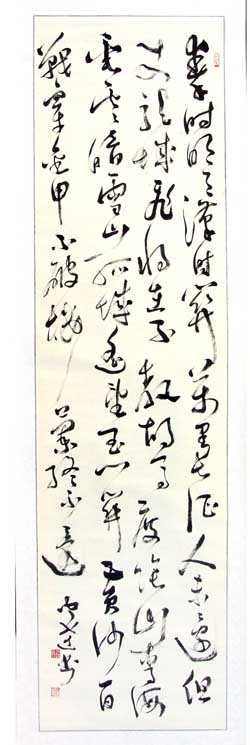 秦時明月漢時關萬里長征人未還但
使龍城飛將在不教胡馬度陰山青海
長雲暗雪山孤城遙望玉門關黃沙百
戰穿金甲不破樓蘭終不還 書